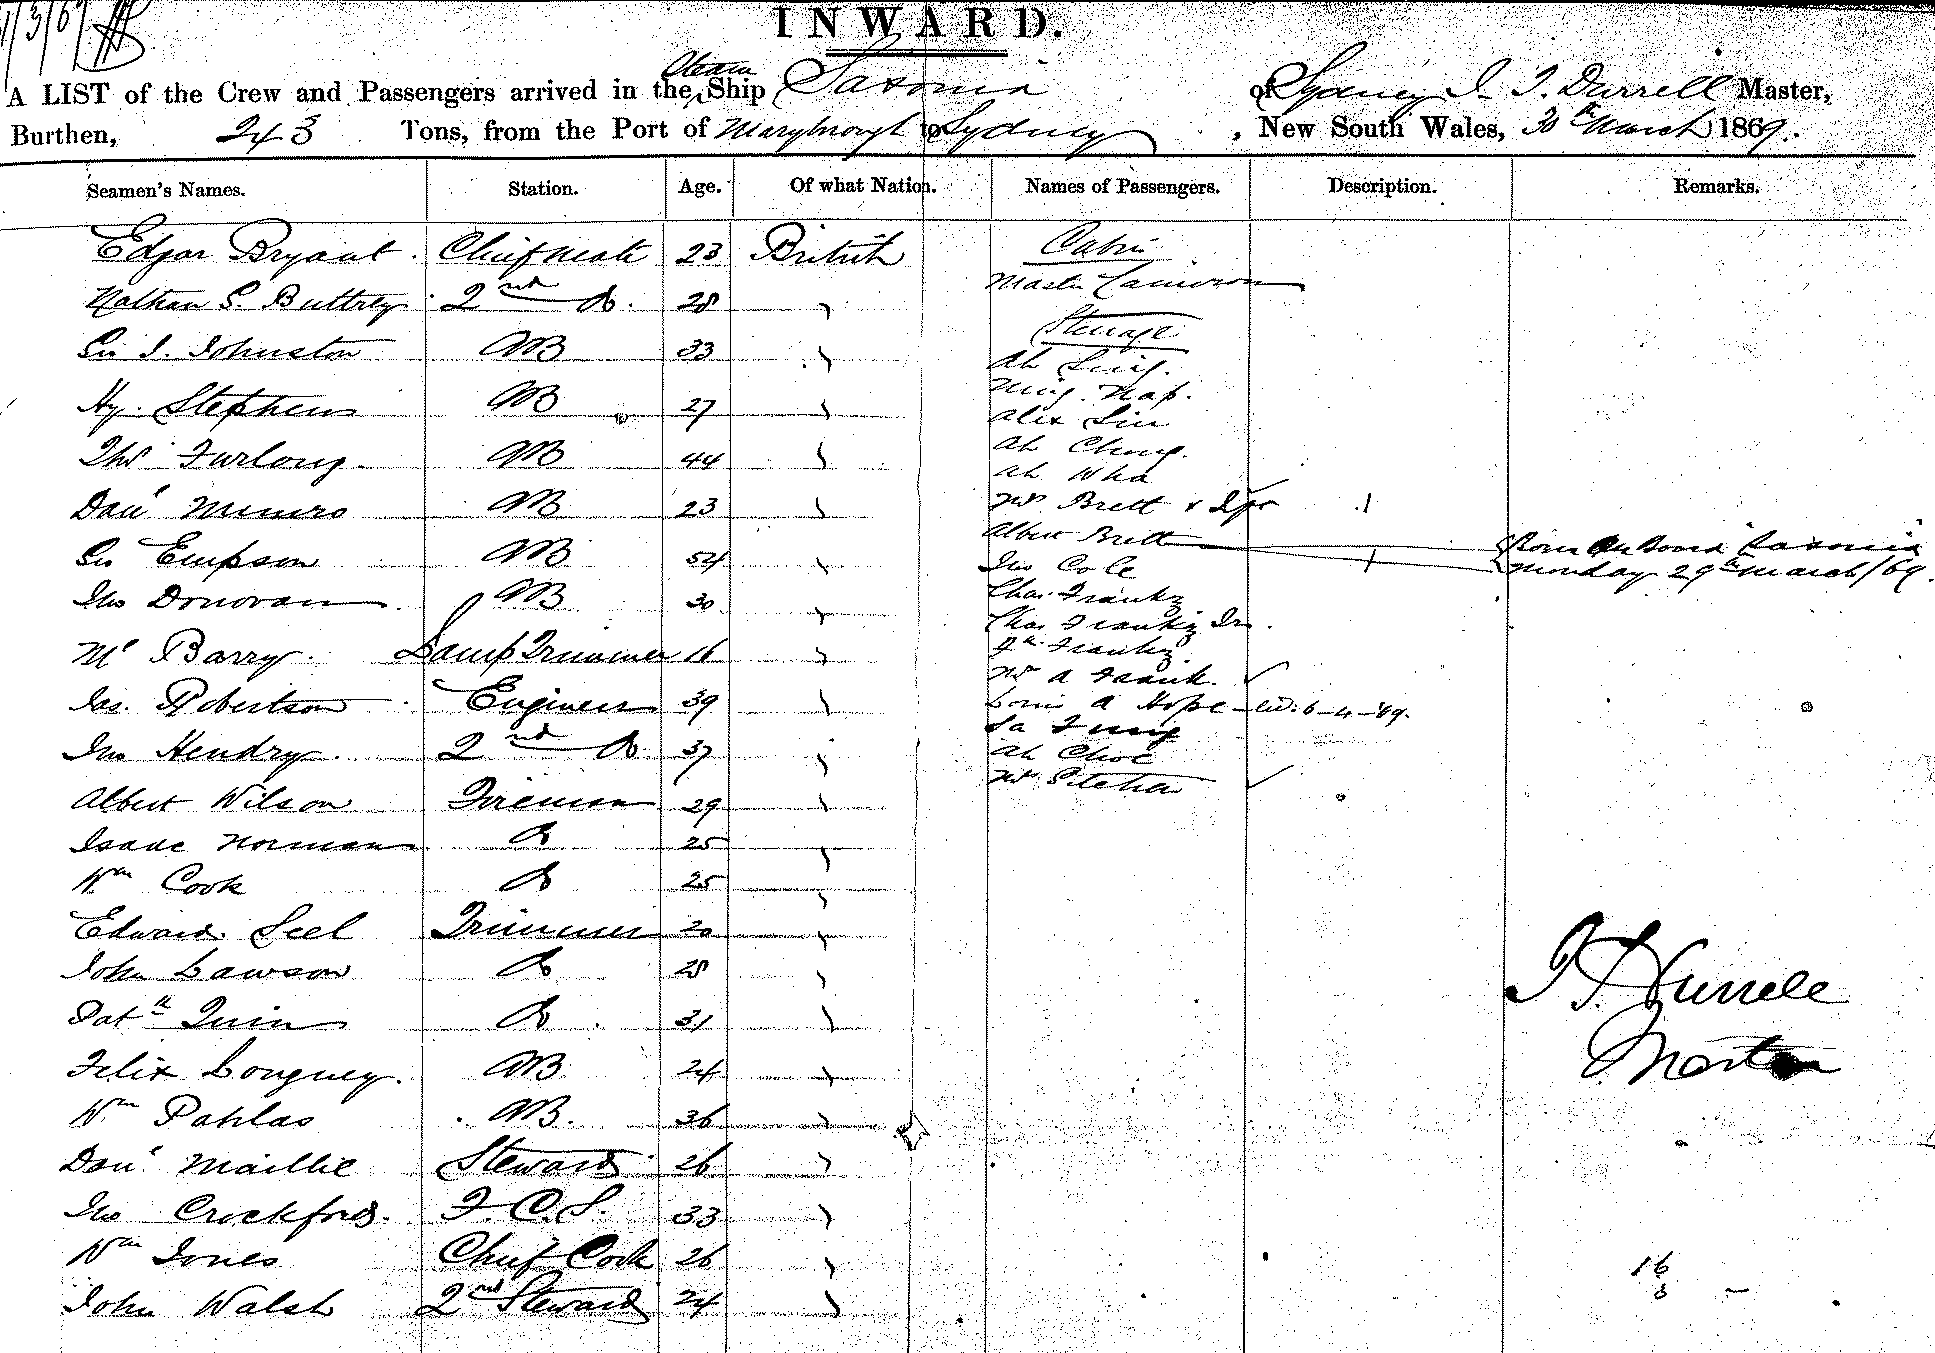 1/3/69
INWARD.
A LIST of the Crew and Passengers arrived in the Steam Ship Saxonia of Sydney I. T. Durrell Master,
Burthen, 243 Tons, from the Port of Maryborough to Sydney, New South Wales, 30th March 1869.
Seamen's Names. Station. Age. Of what Nation. Names of Passengers. Description. Remarks.
Edgar Bryant. Chief Mate 23 British
Nathan S. Buttrey 2nd Do. 28 "
Geo J. Johnston AB 33 "
Hy. Stephens AB 27 "
Thos Furlong AB 44 "
Danl Munro AB 23 "
Geo Empson AB 54 "
Jno Donovan AB 30 "
Ml Barry Lamp Trimmer 16 "
Jas. Robertson Engineer 39 "
Jno Hendry 2nd Do 37 "
Albert Wilson Fireman 29 "
Isaac Norman Do 25 "
Wm Cook Do 25 "
Edward Seel Trimmer 20 "
John Lawson Do 28 "
Patk Quin Do 31 "
Felix Longney AB 24 "
Wm Pahlas AB. 36 "
Danl Maillie Steward 26 "
Jno Crockford F.C.S. 33 "
Wm Jones Chief Cook 26 "
John Walsh 2nd Steward 24 "
Cabin
Master Cameron
Steerage
Ah Sing.
Ming Nap.
Alix Sin
Ah Chung.
Ah Wha
Mrs Brett & Infr 1
Albert Brett 1 Born on Board Saxonia
Monday 29th March/69.
Jno Cole
Chas. Frankz
Chas Frankz Jnr.
Frankz
Mrs A Frank.
A Hope 6-4-69.
Ah Choe
Mrs
I T Durrell
Master
16